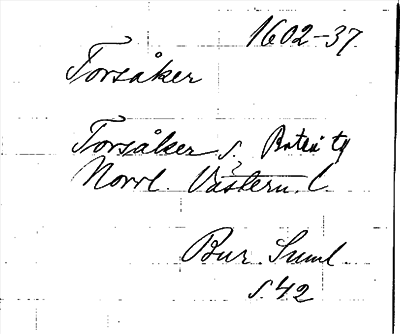 1602-37.
Torsåker
Torsåker s. Boteå tg
Norrl. Västern. l.
Bur. Suml
s. 42